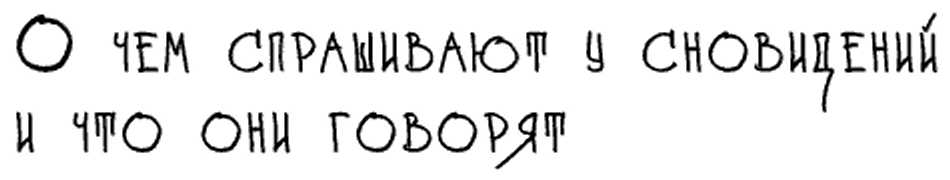 О ЧЕМ СПРАШИВАЮТ У СНОВИДЕНИЙ
И ЧТО ОНИ ГОВОРЯТ